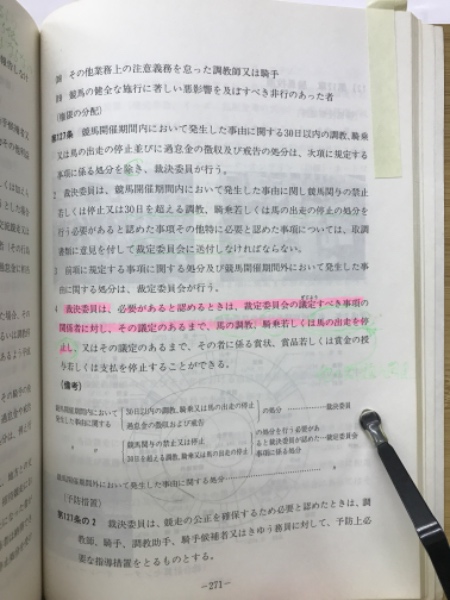 その他業務上の注意義務を怠った調教師又は騎手
競馬の健全な施行に著しい悪影響を及ぼすべき非行のあった者
(権限の分配)
第127条 競馬開催期間内において発生した事由に関する30日以内の調教、騎乗
又は馬の出走の停止並びに過怠金の徴収及び戒告の処分は、次項に規定する
事項に係る処分を除き、裁決委員が行う。
2 裁決委員は、競馬開催期間内において発生した事由に関し競馬関与の禁止
若しくは停止又は30日を超える調教、騎乗若しくは馬の出走の停止の処分を
行う必要があると認めた事項その他特に必要と認めた事項については、取調
書類に意見を付して裁定委員会に送付しなければならない。
3 前項に規定する事項に関する処分及び競馬開催期間外において発生した事
由に関する処分は、裁定委員会が行う。
4 裁決委員は、必要があると認めるときは、裁定委員会の議定すべき事項の
関係者に対し、その議定のあるまで、馬の調教、騎乗若しくは馬の出走を停
止し、又はその議定のあるまで、その者に係る賞状、賞品若しくは賞金の授
与若しくは支払を停止することができる。
(備考)
競馬開催期間内において
発生した事由に関する
30日以内の調教、騎乗又は馬の出走の停止
過怠金の徴収及び戒告
の処分 ………… 裁決委員
競馬関与の禁止又は停止
30日を超える調教、騎乗又は馬の出走の停止
の処分を行う必要があ
ると裁決委員が認めた…裁定委員会
事項に係る処分
競馬開催期間外において発生した事由に関する処分…………… 〃
(予防措置)
第127条の2 裁決委員は、競走の公正を確保するため必要と認めたときは、調
教師、騎手、調教助手、騎手候補者又はきゆう務員に対して、予防上必
要な指導措置をとるものとする。
—271—